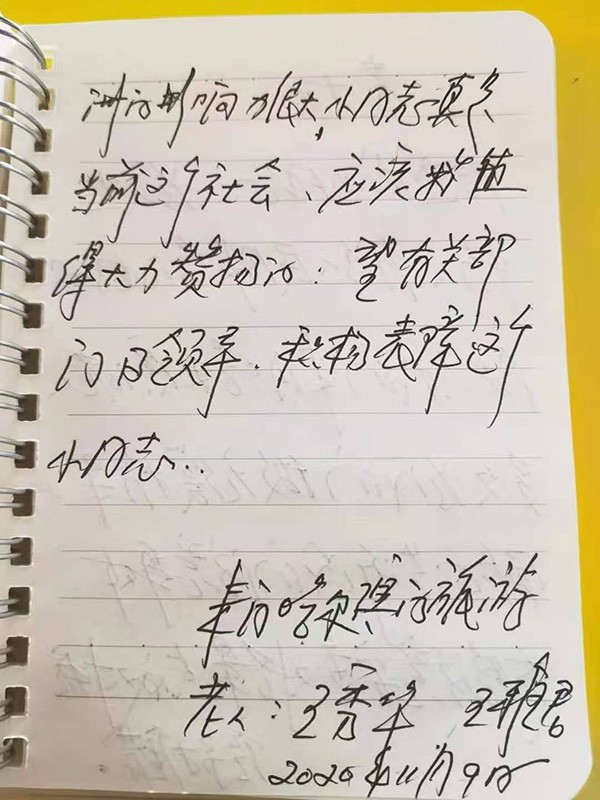 的影响力很大,小同志真
当前这个社会、应该是值
得大力赞扬的:望有关部
门及领导.积极表彰这个
小同志..
来自哈尔滨的旅游
老人:王秀华 王雅君
2020年11月9日